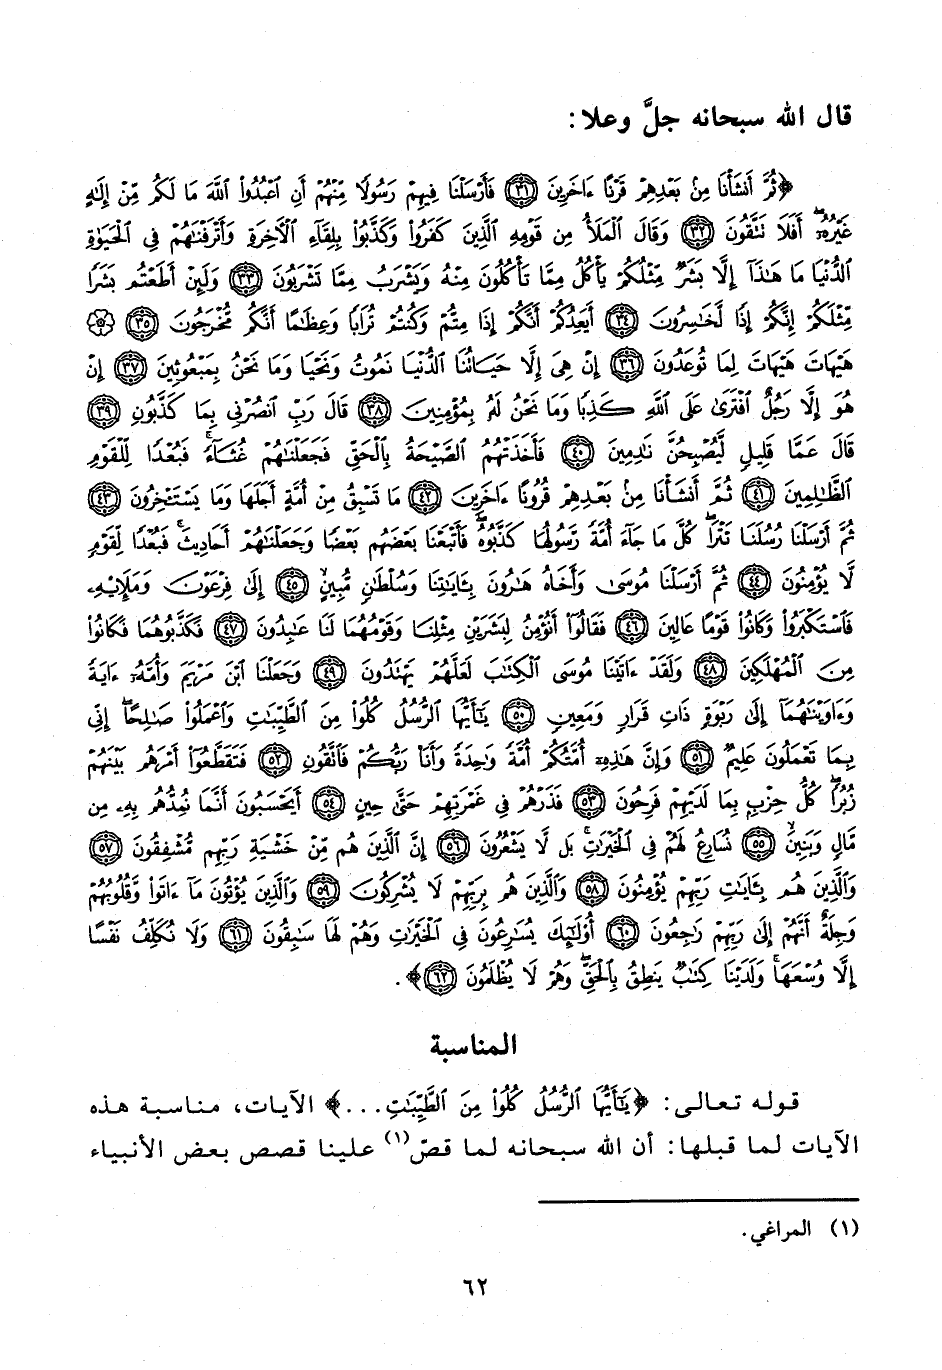 قال الله سبحانه جلَّ وعلا:
﴿ثُمَّ أَنشَأْنَا مِنۢ بَعْدِهِمْ قَرْنًا ءَاخَرِينَ ﴿٣١﴾ فَأَرْسَلْنَا فِيهِمْ رَسُولًا مِّنْهُمْ أَنِ ٱعْبُدُوا۟ ٱللَّهَ مَا لَكُم مِّنْ إِلَٰهٍ
غَيْرُهُۥٓ ۖ أَفَلَا تَتَّقُونَ ﴿٣٢﴾ وَقَالَ ٱلْمَلَأُ مِن قَوْمِهِ ٱلَّذِينَ كَفَرُوا۟ وَكَذَّبُوا۟ بِلِقَآءِ ٱلْءَاخِرَةِ وَأَتْرَفْنَٰهُمْ فِى ٱلْحَيَوٰةِ
ٱلدُّنْيَا مَا هَٰذَآ إِلَّا بَشَرٌ مِّثْلُكُمْ يَأْكُلُ مِمَّا تَأْكُلُونَ مِنْهُ وَيَشْرَبُ مِمَّا تَشْرَبُونَ ﴿٣٣﴾ وَلَئِنْ أَطَعْتُم بَشَرًا
مِّثْلَكُمْ إِنَّكُمْ إِذًا لَّخَٰسِرُونَ ﴿٣٤﴾ أَيَعِدُكُمْ أَنَّكُمْ إِذَا مِتُّمْ وَكُنتُمْ تُرَابًا وَعِظَٰمًا أَنَّكُم مُّخْرَجُونَ ﴿٣٥﴾ ۞
هَيْهَاتَ هَيْهَاتَ لِمَا تُوعَدُونَ ﴿٣٦﴾ إِنْ هِىَ إِلَّا حَيَاتُنَا ٱلدُّنْيَا نَمُوتُ وَنَحْيَا وَمَا نَحْنُ بِمَبْعُوثِينَ ﴿٣٧﴾ إِنْ
هُوَ إِلَّا رَجُلٌ ٱفْتَرَىٰ عَلَى ٱللَّهِ كَذِبًا وَمَا نَحْنُ لَهُۥ بِمُؤْمِنِينَ ﴿٣٨﴾ قَالَ رَبِّ ٱنصُرْنِى بِمَا كَذَّبُونِ ﴿٣٩﴾
قَالَ عَمَّا قَلِيلٍ لَّيُصْبِحُنَّ نَٰدِمِينَ ﴿٤٠﴾ فَأَخَذَتْهُمُ ٱلصَّيْحَةُ بِٱلْحَقِّ فَجَعَلْنَٰهُمْ غُثَآءً ۚ فَبُعْدًا لِّلْقَوْمِ
ٱلظَّٰلِمِينَ ﴿٤١﴾ ثُمَّ أَنشَأْنَا مِنۢ بَعْدِهِمْ قُرُونًا ءَاخَرِينَ ﴿٤٢﴾ مَا تَسْبِقُ مِنْ أُمَّةٍ أَجَلَهَا وَمَا يَسْتَـْٔخِرُونَ ﴿٤٣﴾
ثُمَّ أَرْسَلْنَا رُسُلَنَا تَتْرَا ۖ كُلَّ مَا جَآءَ أُمَّةً رَّسُولُهَا كَذَّبُوهُ ۚ فَأَتْبَعْنَا بَعْضَهُم بَعْضًا وَجَعَلْنَٰهُمْ أَحَادِيثَ ۚ فَبُعْدًا لِّقَوْمٍ
لَّا يُؤْمِنُونَ ﴿٤٤﴾ ثُمَّ أَرْسَلْنَا مُوسَىٰ وَأَخَاهُ هَٰرُونَ بِـَٔايَٰتِنَا وَسُلْطَٰنٍ مُّبِينٍ ﴿٤٥﴾ إِلَىٰ فِرْعَوْنَ وَمَلَإِي۟هِۦ
فَٱسْتَكْبَرُوا۟ وَكَانُوا۟ قَوْمًا عَالِينَ ﴿٤٦﴾ فَقَالُوٓا۟ أَنُؤْمِنُ لِبَشَرَيْنِ مِثْلِنَا وَقَوْمُهُمَا لَنَا عَٰبِدُونَ ﴿٤٧﴾ فَكَذَّبُوهُمَا فَكَانُوا۟
مِنَ ٱلْمُهْلَكِينَ ﴿٤٨﴾ وَلَقَدْ ءَاتَيْنَا مُوسَى ٱلْكِتَٰبَ لَعَلَّهُمْ يَهْتَدُونَ ﴿٤٩﴾ وَجَعَلْنَا ٱبْنَ مَرْيَمَ وَأُمَّهُۥٓ ءَايَةً
وَءَاوَيْنَٰهُمَآ إِلَىٰ رَبْوَةٍ ذَاتِ قَرَارٍ وَمَعِينٍ ﴿٥٠﴾ يَٰٓأَيُّهَا ٱلرُّسُلُ كُلُوا۟ مِنَ ٱلطَّيِّبَٰتِ وَٱعْمَلُوا۟ صَٰلِحًا ۖ إِنِّى
بِمَا تَعْمَلُونَ عَلِيمٌ ﴿٥١﴾ وَإِنَّ هَٰذِهِۦٓ أُمَّتُكُمْ أُمَّةً وَٰحِدَةً وَأَنَا۠ رَبُّكُمْ فَٱتَّقُونِ ﴿٥٢﴾ فَتَقَطَّعُوٓا۟ أَمْرَهُم بَيْنَهُمْ
زُبُرًا ۖ كُلُّ حِزْبٍۭ بِمَا لَدَيْهِمْ فَرِحُونَ ﴿٥٣﴾ فَذَرْهُمْ فِى غَمْرَتِهِمْ حَتَّىٰ حِينٍ ﴿٥٤﴾ أَيَحْسَبُونَ أَنَّمَا نُمِدُّهُم بِهِۦ مِن
مَّالٍ وَبَنِينَ ﴿٥٥﴾ نُسَارِعُ لَهُمْ فِى ٱلْخَيْرَٰتِ ۚ بَل لَّا يَشْعُرُونَ ﴿٥٦﴾ إِنَّ ٱلَّذِينَ هُم مِّنْ خَشْيَةِ رَبِّهِم مُّشْفِقُونَ ﴿٥٧﴾
وَٱلَّذِينَ هُم بِـَٔايَٰتِ رَبِّهِمْ يُؤْمِنُونَ ﴿٥٨﴾ وَٱلَّذِينَ هُم بِرَبِّهِمْ لَا يُشْرِكُونَ ﴿٥٩﴾ وَٱلَّذِينَ يُؤْتُونَ مَآ ءَاتَوا۟ وَّقُلُوبُهُمْ
وَجِلَةٌ أَنَّهُمْ إِلَىٰ رَبِّهِمْ رَٰجِعُونَ ﴿٦٠﴾ أُو۟لَٰٓئِكَ يُسَٰرِعُونَ فِى ٱلْخَيْرَٰتِ وَهُمْ لَهَا سَٰبِقُونَ ﴿٦١﴾ وَلَا نُكَلِّفُ نَفْسًا
إِلَّا وُسْعَهَا ۖ وَلَدَيْنَا كِتَٰبٌ يَنطِقُ بِٱلْحَقِّ ۚ وَهُمْ لَا يُظْلَمُونَ ﴿٦٢﴾﴾.
المناسبة
قوله تعالى: ﴿يَٰٓأَيُّهَا ٱلرُّسُلُ كُلُوا۟ مِنَ ٱلطَّيِّبَٰتِ...﴾ الآيات، مناسبة هذه
الآيات لما قبلها: أن الله سبحانه لما قصّ(١) علينا قصص بعض الأنبياء
(١) المراغي.
٦٢